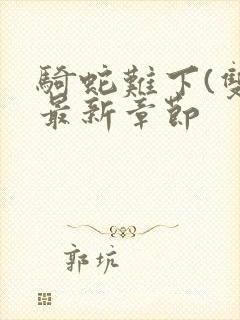 騎蛇難下(雙
最新章節
郭坑